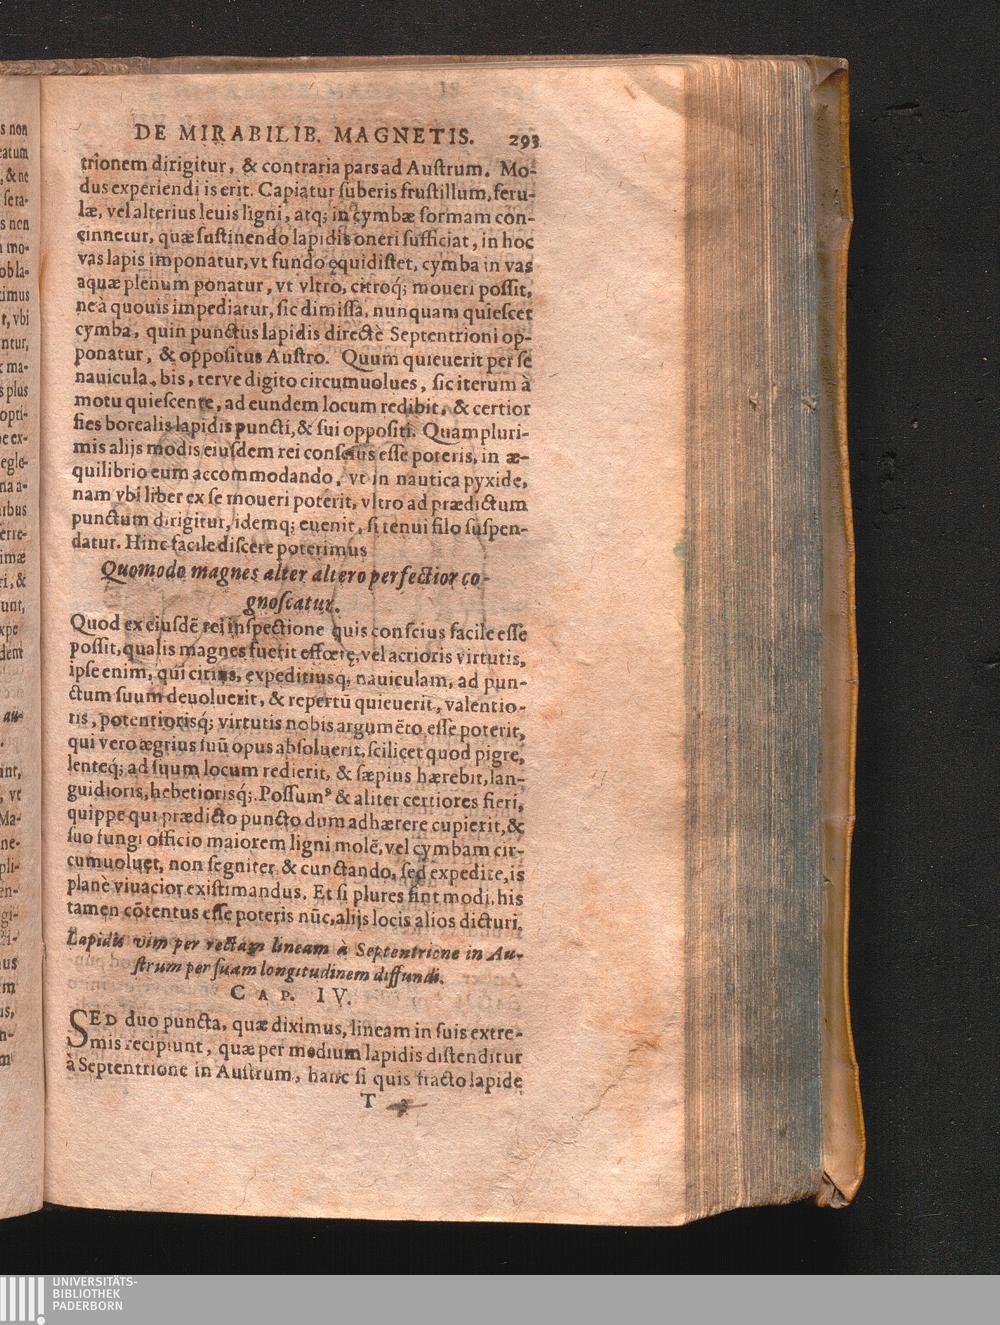 DE MIRABILIB. MAGNETIS. 293
trionem dirigitur, & contraria pars ad Auſtrum. Mo-
dus experiendi is erit. Capiatur ſuberis fruſtillum, feru-
læ, vel alterius leuis ligni, atq; in cymbæ formam con-
cinnetur, quæ ſuſtinendo lapidis oneri ſufficiat, in hoc
vas lapis imponatur, vt fundo ęquidiſtet, cymba in vas
aquæ plenum ponatur, vt vltro, citroq́; moueri poſſit,
ne à quouis impediatur, ſic dimiſſa, nunquam quieſcet
cymba, quin punctus lapidis directè Septentrioni op-
ponatur, & oppoſitus Auſtro. Quum quieuerit per ſe
nauicula, bis, terve digito circumuolues, ſic iterum à
motu quieſcente, ad eundem locum redibit, & certior
fies borealis lapidis puncti, & ſui oppoſiti. Quam pluri-
mis alijs modis eiuſdem rei conſcius eſſe poteris, in æ-
quilibrio eum accommodando, vt in nautica pyxide,
nam vbi liber ex ſe moueri poterit, vltro ad prædictum
punctum dirigitur, idemq; euenit, ſi tenui filo ſuſpen-
datur. Hinc facile diſcere poterimus
Quomodo magnes alter altero perfectior co-
gnoſcatur.
Quod ex eiuſdē rei inſpectione quis conſcius facile eſſe
poſſit, qualis magnes fuerit effœtę, vel acrioris virtutis,
ipſe enim, qui citius, expeditiusq; nauiculam, ad pun-
ctum ſuum deuoluerit, & repertū quieuerit, valentio-
ris, potentiorisq́; virtutis nobis argumēto eſſe poterit,
qui vero ægrius ſuū opus abſoluerit, ſcilicet quod pigre,
lenteq́; ad ſuum locum redierit, & ſæpius hærebit, lan-
guidioris, hebetiorisq́;. Poſſumꝰ & aliter certiores fieri,
quippe qui prædicto puncto dum adhærere cupierit, &
ſuo fungi officio maiorem ligni molē, vel cymbam cir-
cumuoluet, non ſegniter & cunctando, ſed expedite, is
planè viuacior exiſtimandus. Et ſi plures ſint modi, his
tamen cōtentus eſſe poteris nūc, alijs locis alios dicturi.
Lapidis vim per rectam lineam à Septentrione in Au-
ſtrum per ſuam longitudinem diffundi.
CAP. IV.
SED duo puncta, quæ diximus, lineam in ſuis extre-
mis recipiunt, quæ per medium lapidis diſtenditur
à Septentrione in Auſtrum, hanc ſi quis fracto lapide
T
UNIVERSITÄTS-
BIBLIOTHEK
PADERBORN